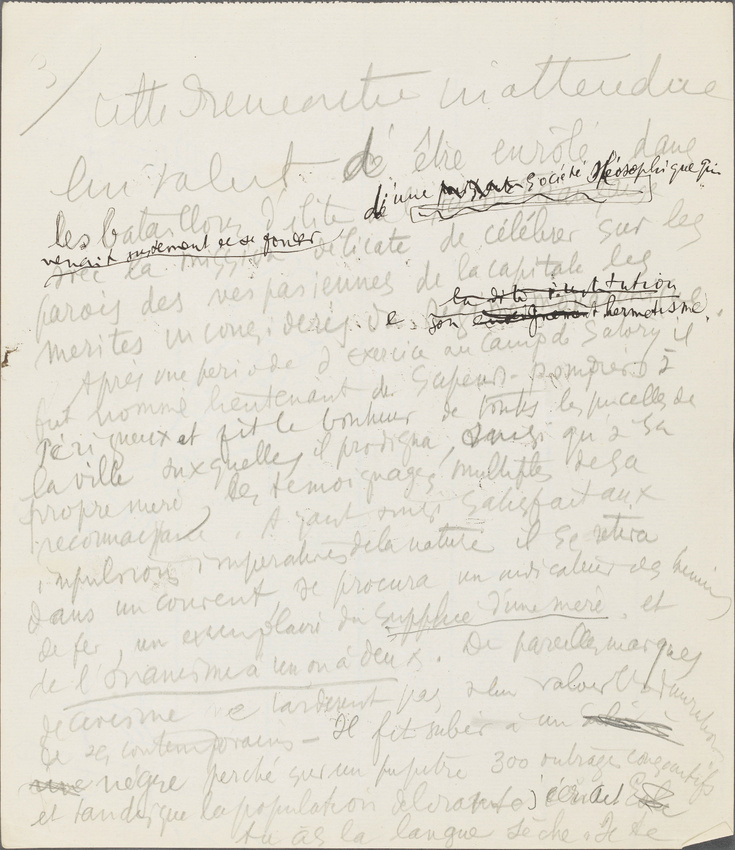 3/
cette rencontre inattendue
lui valut d' être enrôlé dans
les bataillons d'élite
d'une Société théosophique qui
venait justement de se fonder
avec la mission délicate de célébrer sur les
parois des vespasiennes de la capitale les
mérites inconsidérés de
la dite institution
e. son hermétisme.
Après une période d'exercice au camp de Satory il
fut nommé lieutenant de Sapeurs-pompiers à
Périgueux et fit le bonheur de toutes les pucelles de
la ville auxquelles il prodigua, ainsi qu'à sa
propre mère, les témoignages multiples de sa
reconnaissance. Ayant ainsi satisfait aux
impulsions impératives de la nature il se retira
dans un couvent se procura un indicateur des chemins
de fer, un exemplaire du Supplice d'une mère et
de l'Onanisme à un ou à deux. De pareilles marques
de civisme ne tardèrent pas à lui valoir l'admiration
de ses contemporains - Il fit subir à un
nègre perché sur un pupitre 300 outrages consécutifs
et tandis que la population délirante s'écriait
tu as la langue sèche. Je te